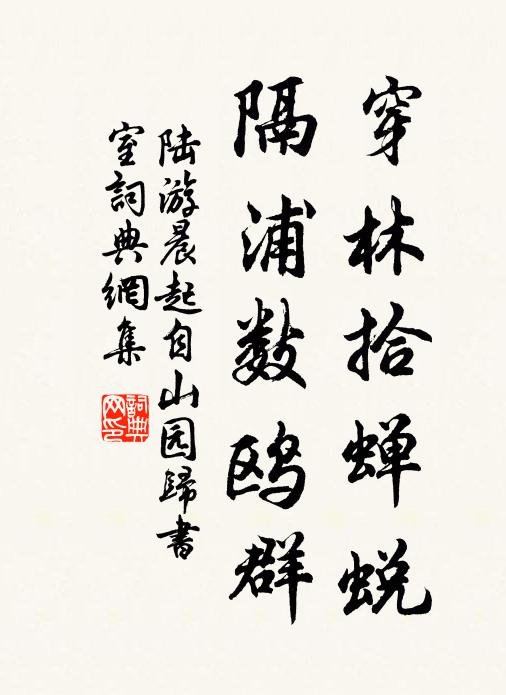 穿林拾蝉蜕
隔浦数鸥群
陆游晨起自山园歸書
室詞典網集
詞典网印